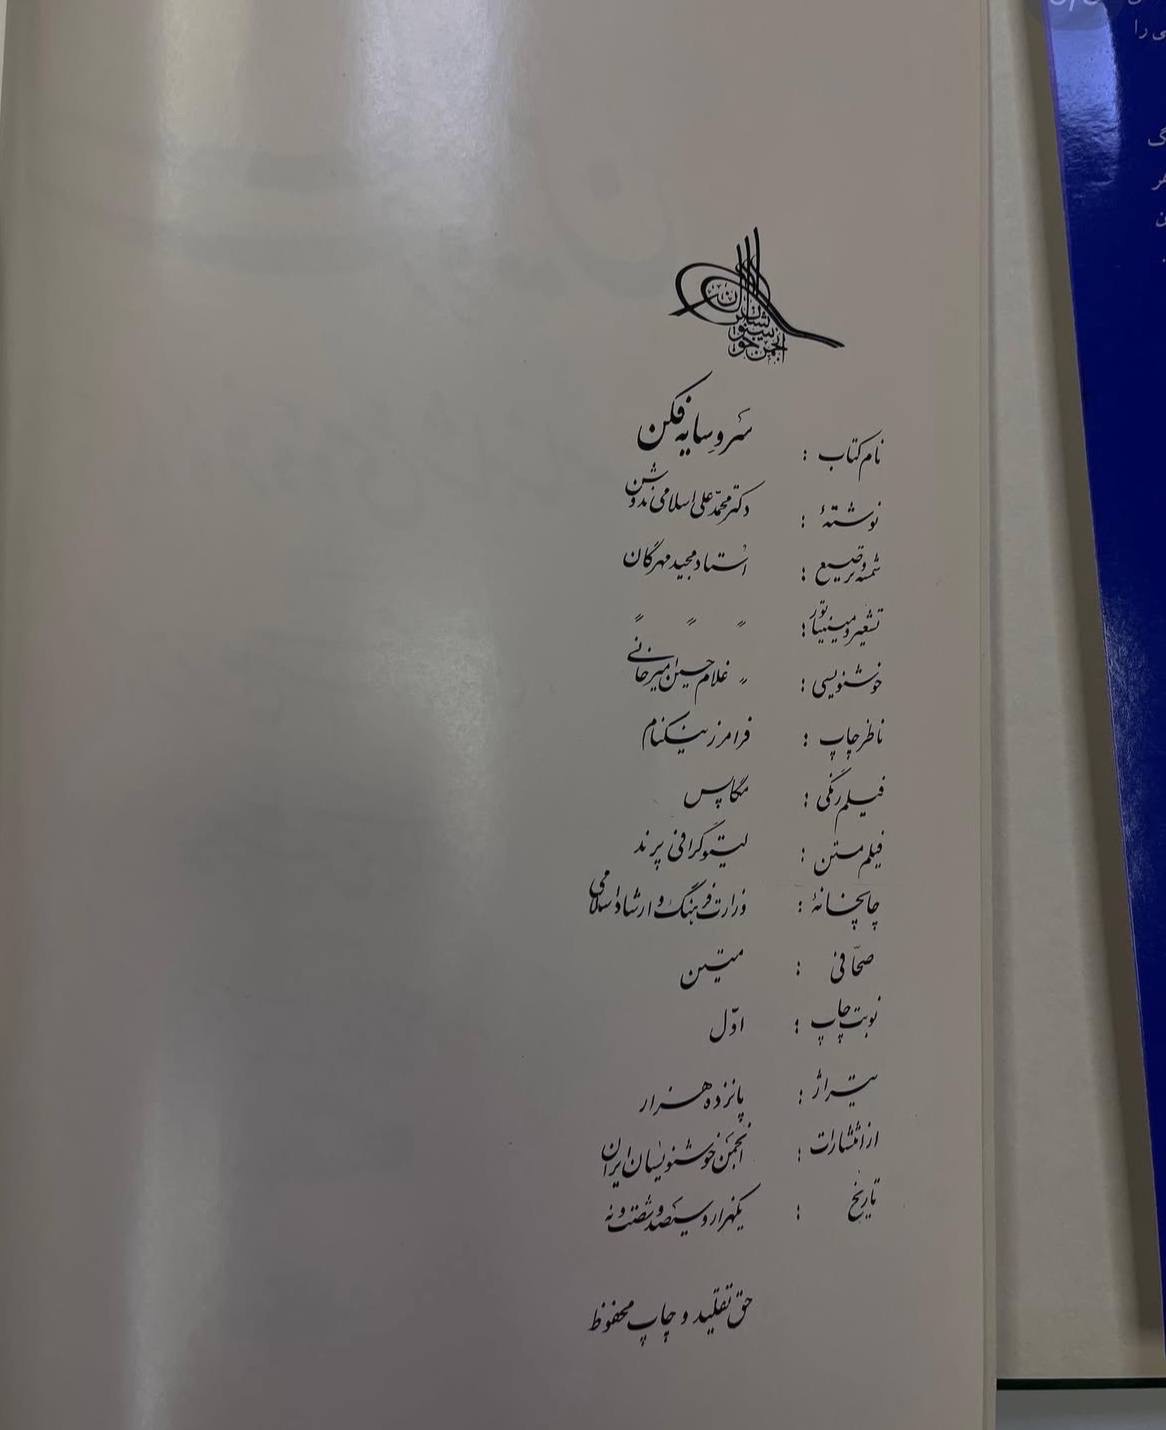 انجمن خوشنویسان ایران
نام کتاب : سرو سایه فکن
نوشتهٔ : دکتر محمد علی اسلامی ندوشن
شمسه و ترصیع : استاد مجید مهرگان
تشعیر و مینیاتور : " " "
خوشنویسی : " غلامحسین امیرخانی
ناظر چاپ : فرامرز نیکنام
فیلم رنگی : مگاپس
فیلم متن : لیتوگرافی پرند
چاپخانهٔ : وزارت فرهنگ و ارشاد اسلامی
صحافی : متین
نوبت چاپ : اوّل
تیراژ : پانزده هزار
از انتشارات : انجمن خوشنویسان ایران
تاریخ : یکهزار و سیصد و شصت و نه
حق تقلید و چاپ محفوظ
ی را
گ
ن